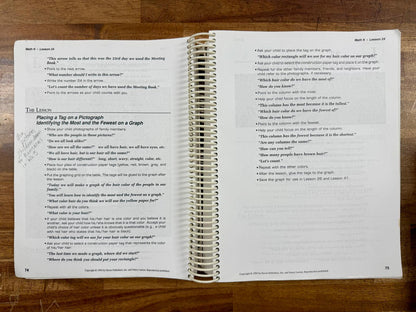 Math K - Lesson 24
"This arrow tells us that this was the 23rd day we used the Meeting
Book."
• Point to the next arrow.
"What number should I write in this arrow?"
• Write the number 24 in the arrow.
"Let's count the number of days we have used the Meeting Book."
• Point to the arrows as your child counts with you.
THE LESSON
Placing a Tag on a Pictograph
Identifying the Most and the Fewest on a Graph
• Show your child photographs of family members.
"Who are the people in these pictures?"
"Do we all look alike?"
"How are we all the same?" we all have hair; we all have eyes, etc.
"We all have hair, but is our hair all the same?"
"How is our hair different?" long, short, wavy, straight, color, etc.
• Place four piles of construction paper tags (yellow, red, brown, gray, and
black) on the table.
• Put the graphing grid on the table. The tags will be glued to the graph after
the lesson.
"Today we will make a graph of the hair color of the people in our
family."
"You will learn how to identify the most and the fewest on a graph."
"What color hair do you think we will use the yellow paper for?"
• Repeat with all the colors.
"What color is your hair?"
• If your child believes that his/her hair is one color and you believe it is
another, ask your child how he/she knows that is that color. Accept your
child's choice of hair color unless it is obviously questionable (e.g., a child
with red hair who states that his/her hair is black).
"Which color tag will we use for your hair color on our graph?"
• Ask your child to select a construction paper tag that represents the color
of his/her hair.
"The last time we made a graph, where did we start?"
"Where do you think you should put your rectangle?"
74
Math K - Lesson 24
• Ask your child to place the tag on the graph.
"Which color rectangle will we use for my hair color on our graph?"
• Ask your child to select the construction paper tag and place it on the graph.
• Repeat for the other family members, friends, and neighbors. Have your
child refer to the photographs, if necessary.
"Which hair color do we have the most of?"
"How do you know?"
• Point to the column with the most.
• Help your child focus on the length of the column.
"This column has the most because it is the tallest."
"Which hair color do we have the fewest of?"
"How do you know?"
• Point to the column with the fewest.
• Help your child focus on the length of the column.
"This column has the fewest because it is the shortest."
"Are any columns the same?"
"How can you tell?"
"How many people have brown hair?"
"Let's count."
• Repeat with the other colors.
• After the lesson, glue the tags to the graph.
• Save the graph for use in Lesson 26 and Lesson 41.
75